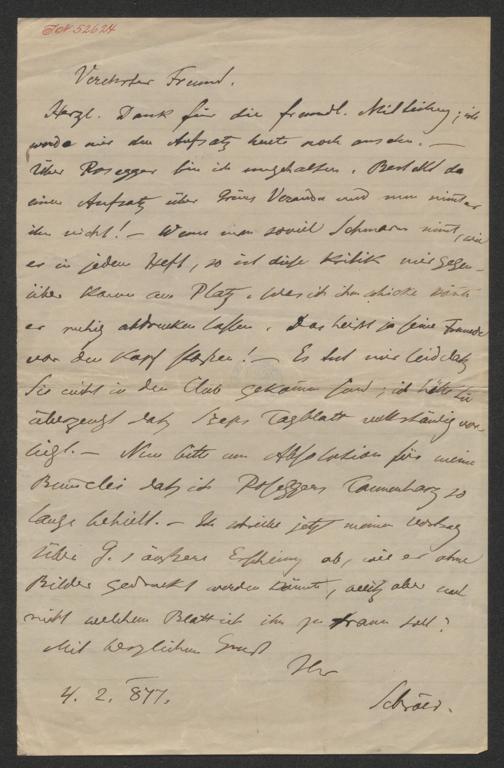 I.N. 52624
Verehrter Freund.
Herzl. Dank für die freundl. Mitteilung; ich
werde mir den Aufsatz heute noch ansehen. —
Über Rosegger bin ich ungehalten. Bestellt da
einen Aufsatz über Grüns Veranda und nun nimmt er
ihn nicht! — Wenn man soviel Schmarrn nimt, wie
er in jedem Heft, so ist diese Kritik mir gegen-
über kaum am Platz. Was ich ihm schicke könnte
er ruhig abdrucken lassen. Das heißt ja seine Freunde
vor den Kopf stoßen! — Es tut mir leid daß
Sie nicht in den Club gekomen sind; ich hätte Sie
überzeugt daß Szeps Tagblatt vollständig vor-
liegt. — Nun bitte um Absolution für meine
daß ich Roseggers Tannenharz so
lange behielt. — Ich schreibe jetzt meinen Vortrag
über G.s äußere Erscheinung ab, wie er ohne
Bilder gedruckt werden könnte, weiß aber noch
nicht welchem Blatt ich ihn soll?
Mit herzlichem Gruß
Ihr
4. 2. 877. Schröer.